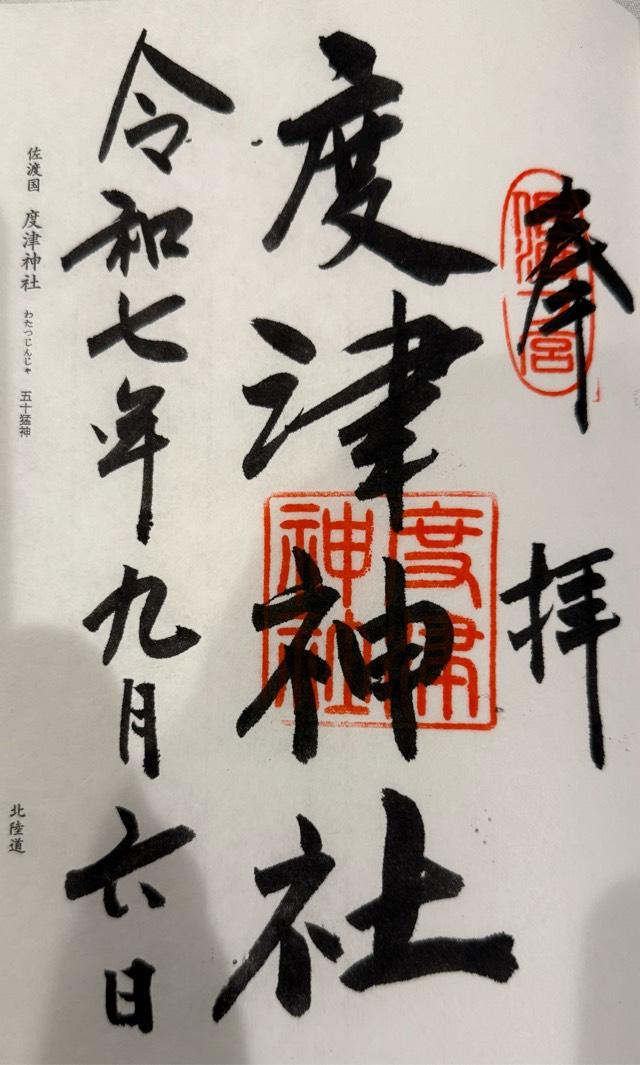 奉拝
佐渡一宮
度津神社
度津神社
令和七年九月六日
佐渡国 度津神社 わたつじんじゃ 五十猛神
北陸道